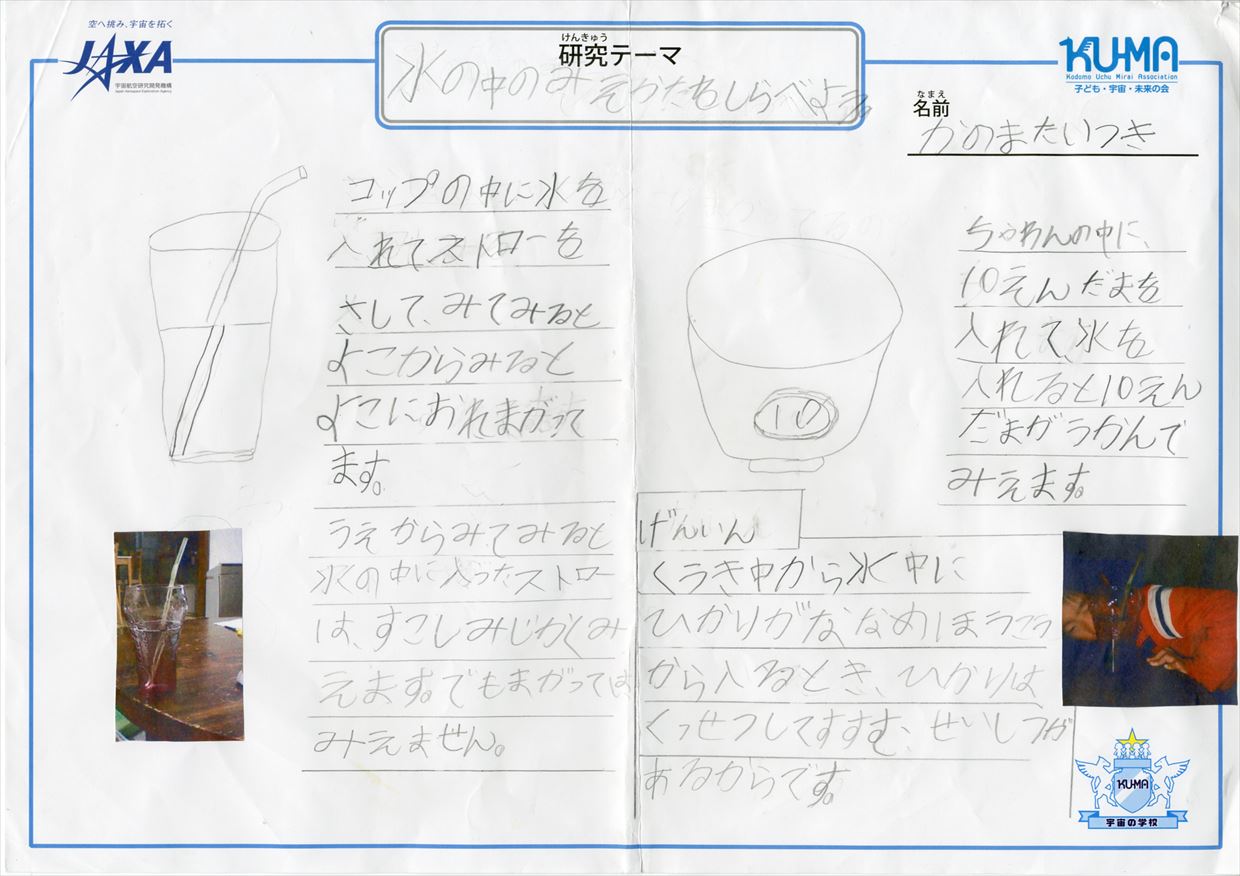 空へ挑み、宇宙を拓く
JAXA
宇宙航空研究開発機構
Japan Aerospace Exploration Agency
けんきゅう
研究テーマ
水の中のみえかたをしらべよう
KU-MA
Kodomo Uchu Mirai Association
子ども・宇宙・未来の会
なまえ
名前
かのまたいつき
コップの中に水を
入れてストローを
さして、みてみると
よこからみると
よこにおれまがって
ます。
うえからみてみると
水の中に入ったストロー
は、すこしみじかくみ
えます。でもまがっては
みえません。
10
ちゃわんの中に、
10えんだまを
入れて、水を
入れると10えん
だまがうかんで
みえます。
げんいん
くうき中から水中に
ひかりがななめほうこう
から入るとき、ひかりは
くっせつしてすすむ、せいしつが
あるからです。
KU-MA
宇宙の学校